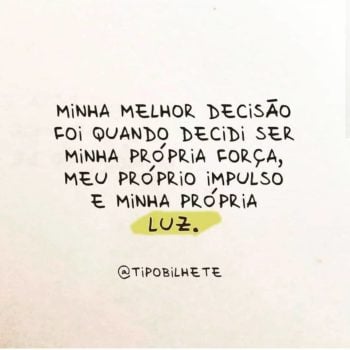 MINHA MELHOR DECISÃO
FOI QUANDO DECIDI SER
MINHA PRÓPRIA FORÇA,
MEU PRÓPRIO IMPULSO
E MINHA PRÓPRIA
LUZ.
@TIPOBILHETE